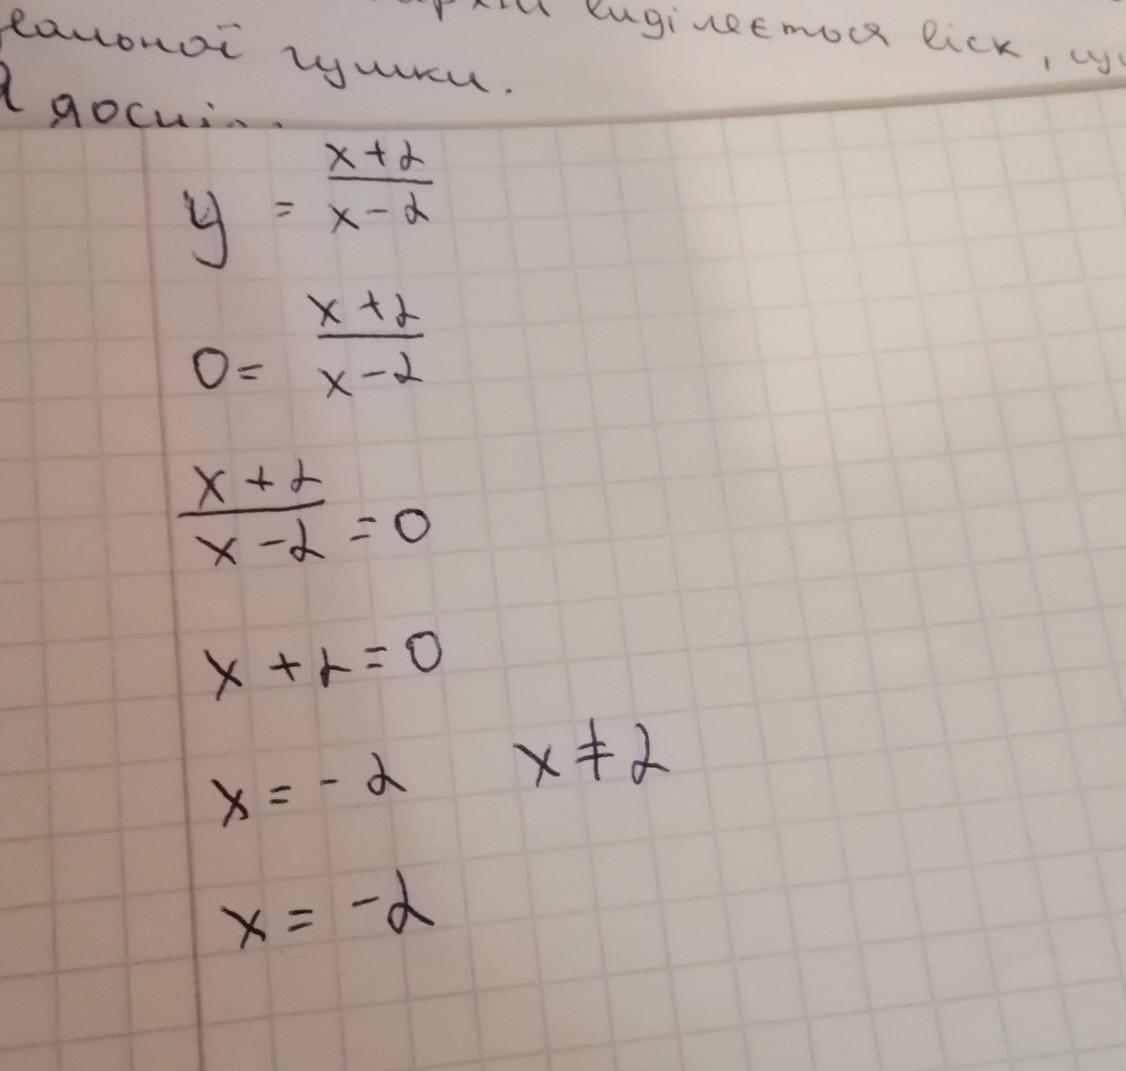 виділяється віск, 
гушки.
y = x+2/x-2
0 = x+2/x-2
x+2/x-2 = 0
x + 2 = 0
x = -2 x ≠ 2
x = -2